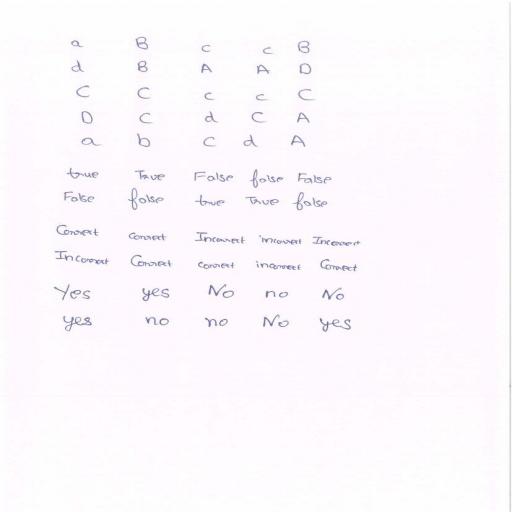 a B c c B
d B A A D
C C c c C
D C d C A
a b c d A
true True False false False
False false true True false
Correct correct Incorrect incorrect Incorrect
Incorrect Correct correct incorrect Correct
Yes yes No no No
yes no no No yes